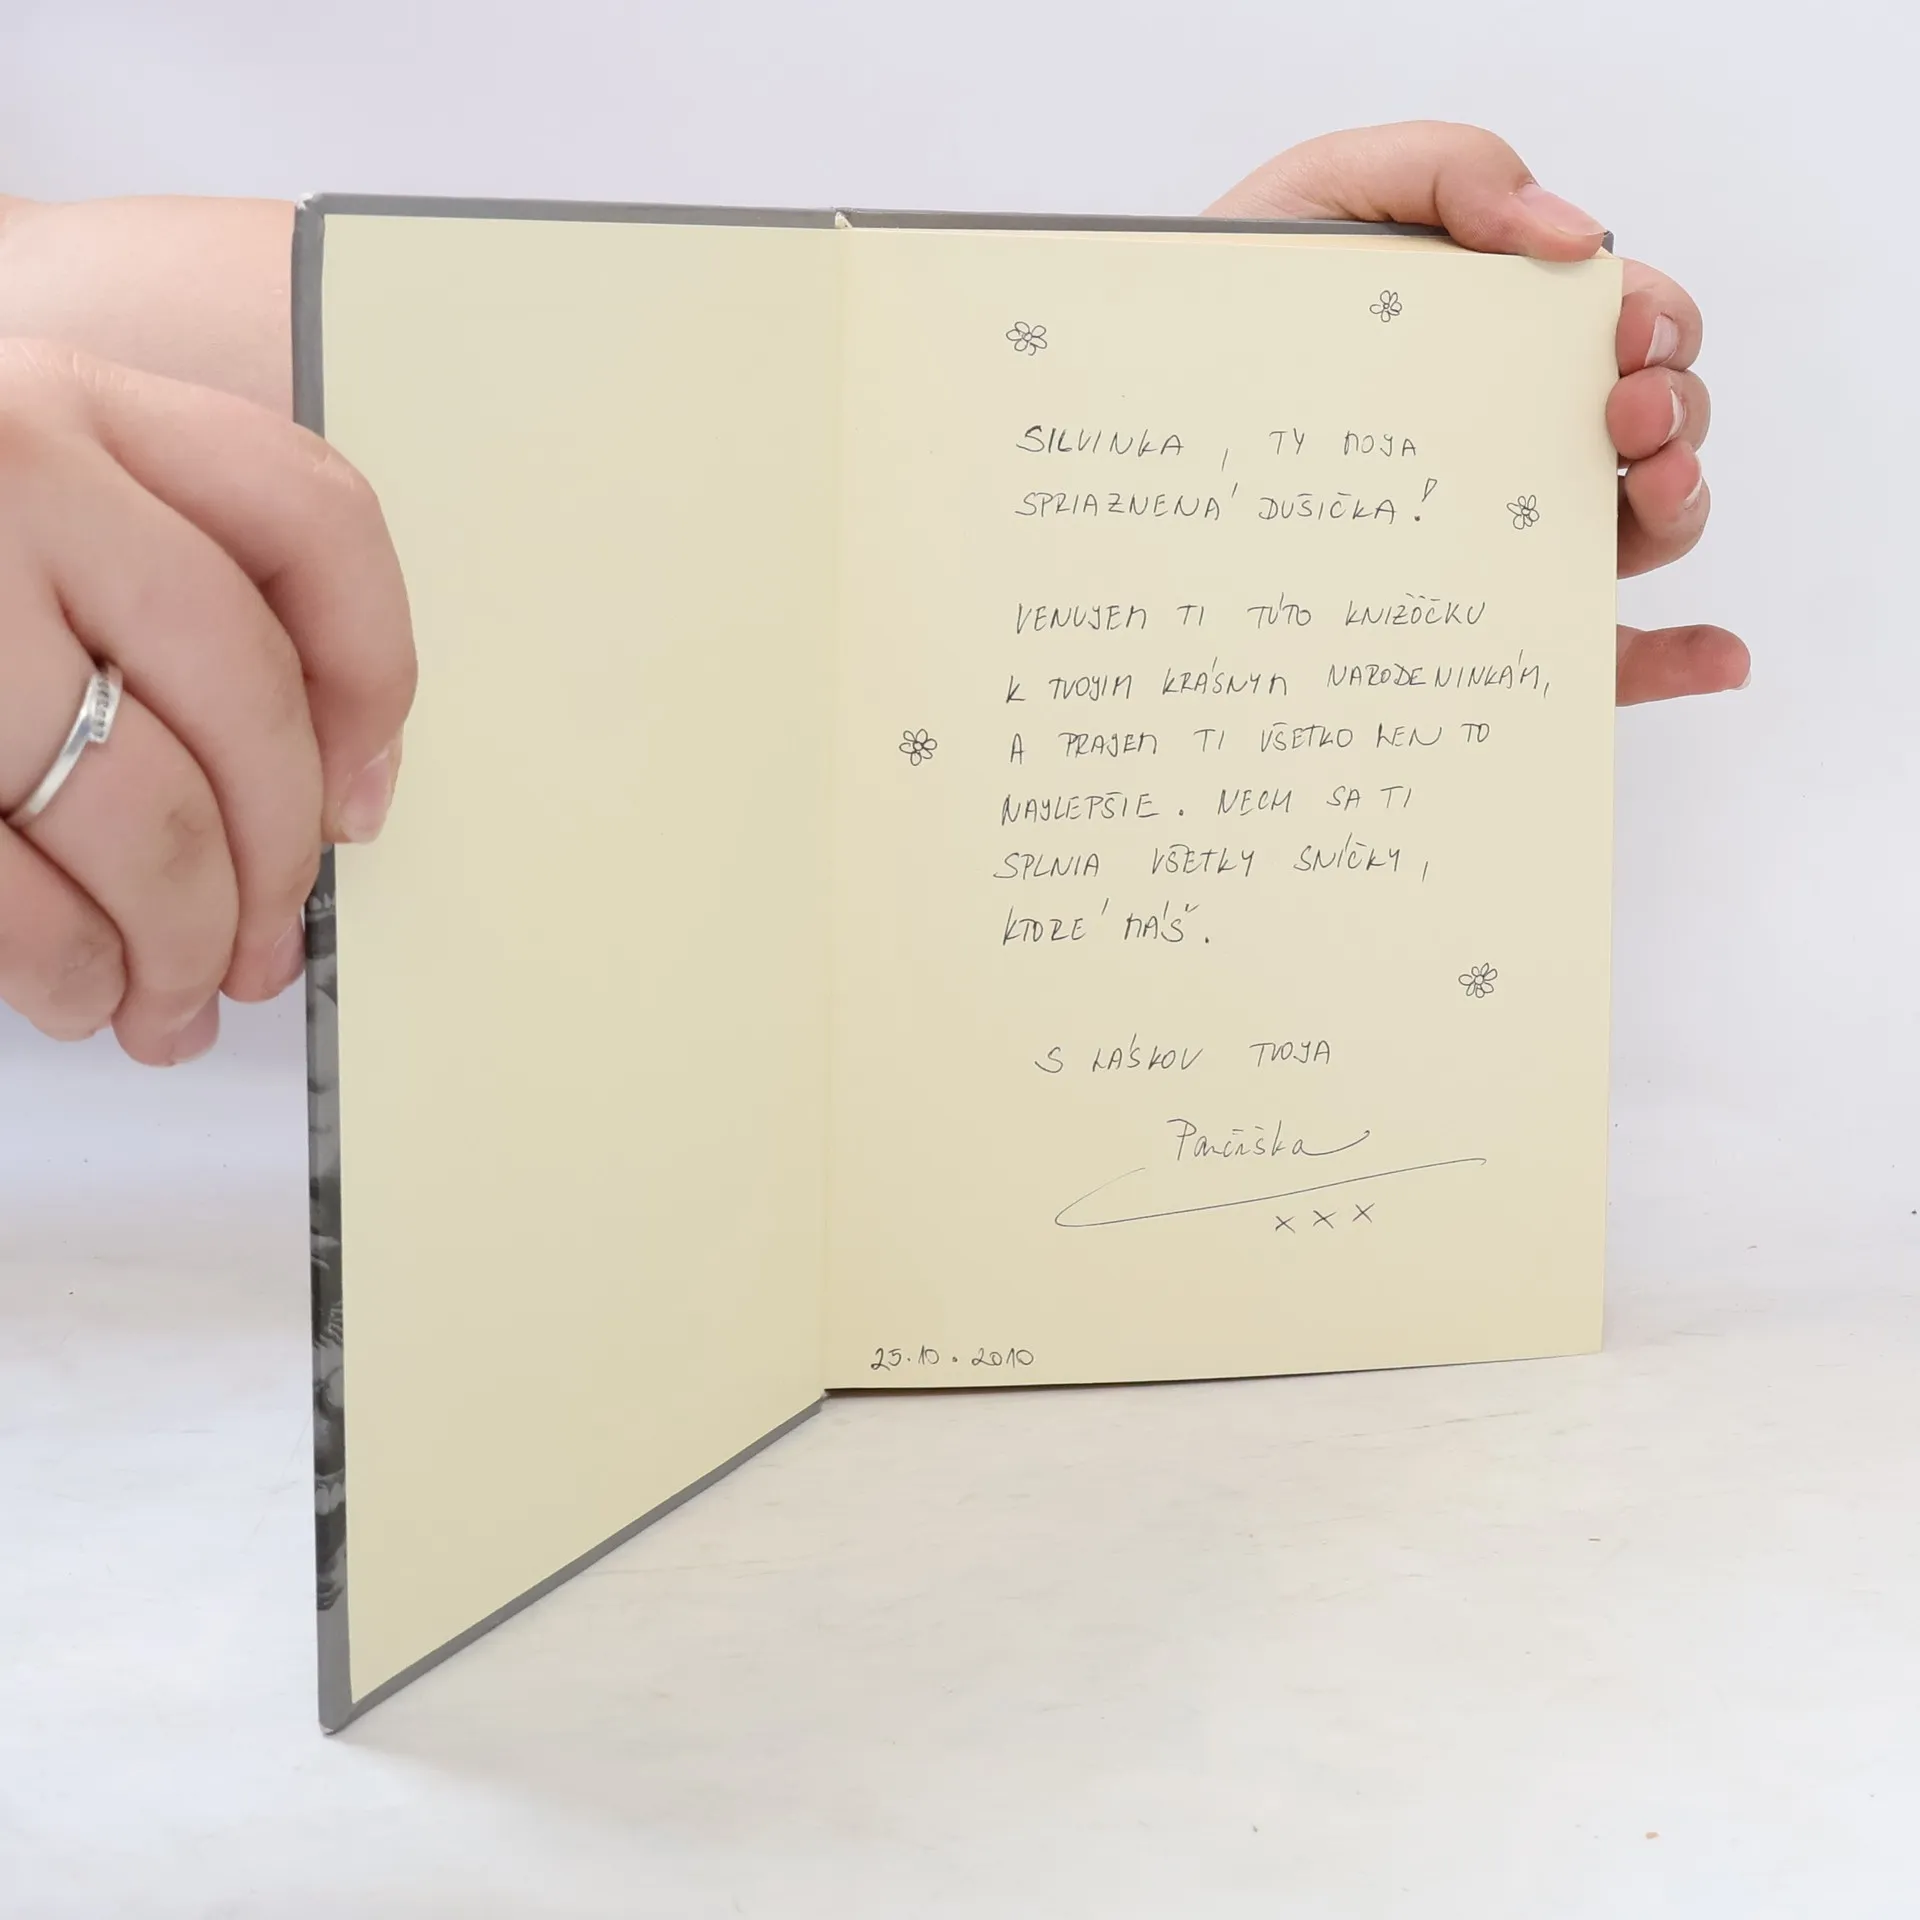 SILVINKA, TY MOJA
SPRIAZNENÁ DUŠIČKA!
VENUJEM TI TÚTO KNIŽÔČKU
K TVOJIM KRÁSNYM NARODENINKÁM,
A PRAJEM TI VŠETKO LEN TO
NAJLEPŠIE. NECH SA TI
SPLNIA VŠETKY SNÍČKY,
KTORÉ MÁŠ.
S LÁSKOU TVOJA
xxx
25.10.2010